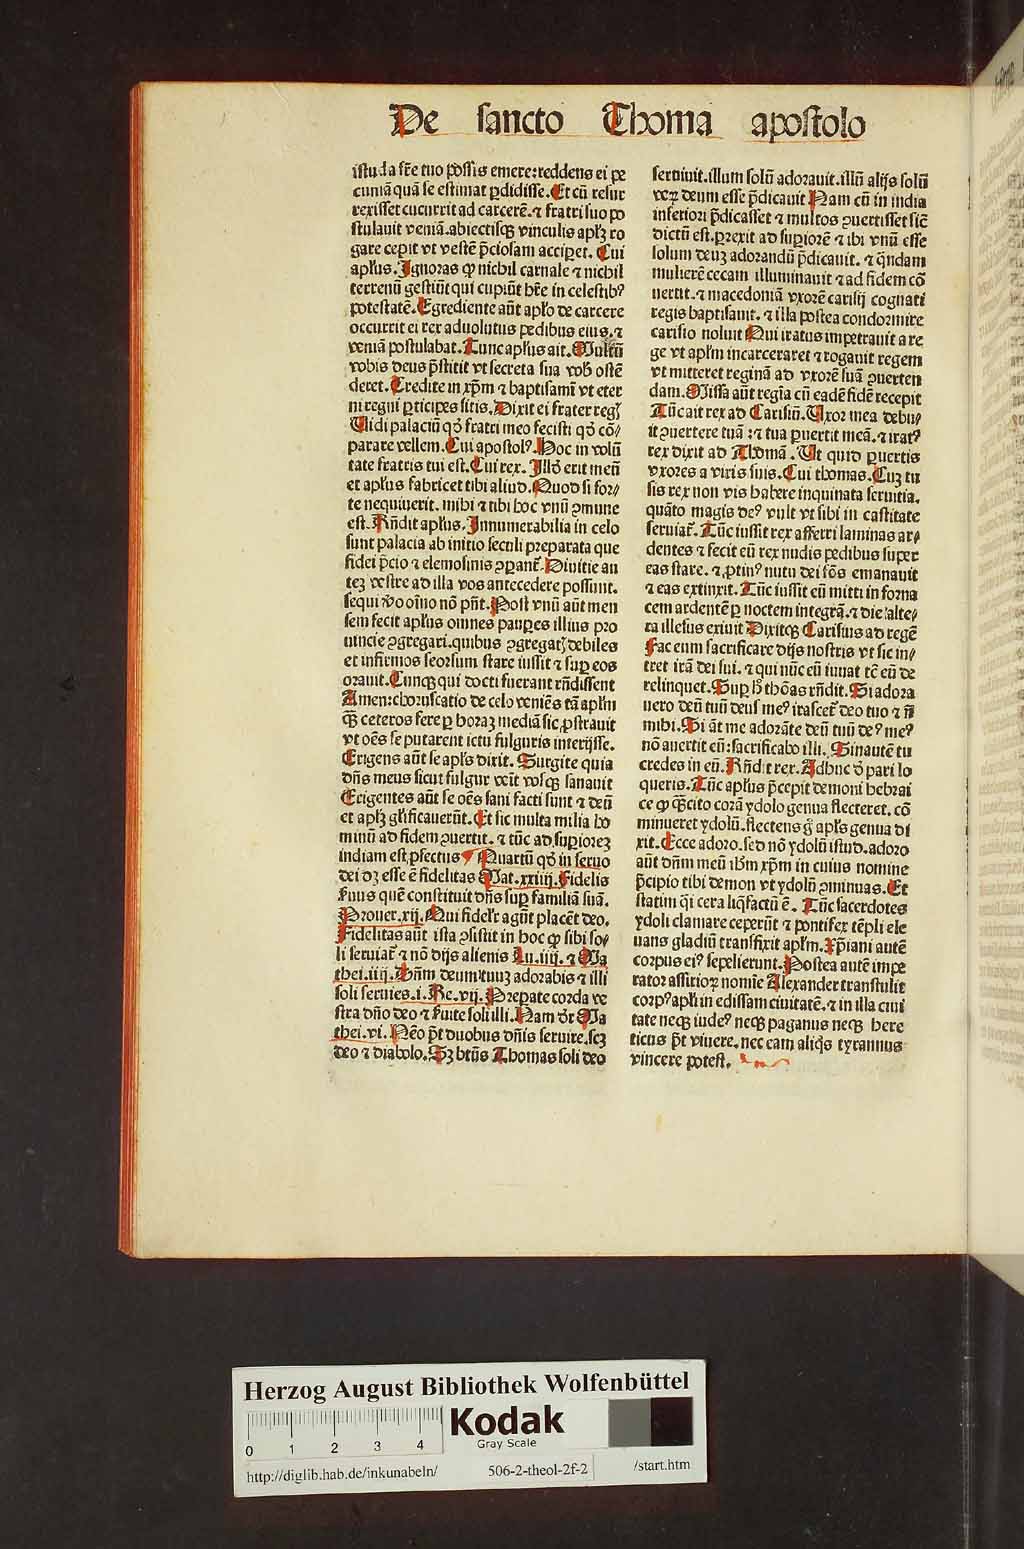 De sancto Thoma apostolo
istud a fr̄e tuo possis emere: reddens ei pe
cuniā quā se estimat ꝑdidisse. Et cū resur
rexisset cucurrit ad carcerē. ⁊ fratri suo po
stulauit veniā. abiectisqꝫ vinculis apl̄ꝫ ro
gare cepit vt vestē p̄ciosam acciꝑet. Cui
apl̄us. Ignoras ꝙ nichil carnale ⁊ nichil
terrenū gestiūt qui cupiūt hr̄e in celestibꝰ
potestatē. Egrediente aūt apl̄o de carcere
occurrit ei rex aduolutus pedibus eius. ⁊
veniā postulabat. Tunc apl̄us ait. Multū
vobis deus p̄stitit vt secreta sua vob̄ ostē
deret. Credite in xp̄m ⁊ baptisamī vt eter
ni regni ꝑticipes sitis. Dixit ei frater reḡ
Uidi palaciū qd̄ fratri meo fecisti qd̄ cō⸗
parare vellem. Cui apostolꝰ. Hoc in volū
tate fratris tui est. Cui rex. Illd̄ erit meū
et apl̄us fabricet tibi aliud. Quod si for⸗
te nequiuerit. mihi ⁊ tibi hoc vnū ꝯmune
est. Rn̄dit apl̄us. Innumerabilia in celo
sunt palacia ab initio seculi preparata que
fidei p̄cio ⁊ elemosinis ꝯꝑant̄. Diuitie au
teꝫ vestre ad illa vos antecedere possunt.
sequi v̄o oīno nō pn̄t. Post vnū aūt men
sem fecit apl̄us omnes pauꝑes illius pro
uincie ꝯgregari. quibus ꝯgregatꝭ debiles
et infirmos seorsum stare iussit ⁊ suꝑ eos
orauit. Cunqꝫ qui docti fuerant rn̄dissent
Amen: choruscatio de celo veniēs tā apl̄m
qꝫ̄ ceteros fere ꝑ horaꝫ mediā sic ꝓstrauit
vt oēs se putarent ictu fulguris interijsse.
Erigens aūt se apl̄s dixit. Surgite quia
dn̄s meus sicut fulgur veīt vosqꝫ sanauit
Erigentes aūt se oēs sani facti sunt ⁊ deū
et apl̄ꝫ gl̄ificauerūt. Et sic multa milia ho
minū ad fidem ꝯuertit. ⁊ tūc ad suꝑioreꝫ
indiam est ꝓfectus ¶ Quartū qd̄ in seruo
dei dꝫ esse ē fidelitas Mat. xxiiij. Fidelis
ẜuus quē constituit dn̄s suꝑ familiā suā.
Prouer. xij. Qui fidelr̄ agūt placēt deo.
Fidelitas aūt ista ꝯsistit in hoc ꝙ sibi so⸗
li seruiat̄ ⁊ nō dijs alienis Lu. iiij. ⁊ Ma
thei. iiij. Dn̄m deum tuuꝫ adorabis ⁊ illi
soli seruies. i. Re. vij. Prepate corda ve
stra dn̄o deo ⁊ ẜuite soli illi. Nam dr̄ Ma
thei. vi. Nēo p̄t duobus dn̄is seruire. scꝫ
deo ⁊ diabolo. Sꝫ btūs Thomas soli deo
seruiuit. illum solū adorauit. illū alijs solū
veꝝ deum esse p̄dicauit Nam cū in india
inferiori p̄dicasset ⁊ multos ꝯuertisset sic̄
dictū est. ꝑrexit ad suꝑiorē ⁊ ibi vnū esse
solum deuꝫ adorandū p̄dicauit. ⁊ quādam
mulierē cecam illuminauit ⁊ ad fidem cō
uertit. ⁊ macedoniā vxorē carisij cognati
regis baptisauit. ⁊ illa postea condormire
carisio noluit Qui iratus impetrauit a re
ge vt apl̄m incarceraret ⁊ rogauit regem
vt mitteret reginā ad vxorē suā ꝯuerten
dam. Missa aūt regīa cū eadē fidē recepit
Tūc ait rex ad Carisiū. Uxor mea debu⸗
it ꝯuertere tuā: ⁊ tua ꝑuertit meā. ⁊ iratꝰ
rex dixit ad Thomā. Ut quid ꝑuertis
vxores a viris suis. Cui thomas. Cuꝫ tu
sis rex non vis habere inquinata seruitia.
quāto magis deꝰ vult vt sibi in castitate
seruiat̄. Tūc iussit rex afferri laminas ar⸗
dentes ⁊ fecit eū rex nudis pedibus super
eas stare. ⁊ ꝓtinꝰ nutu dei fōs emanauit
⁊ eas extinxit. Tūc iussit eū mitti in forna
cem ardentē ꝑ noctem integrā. ⁊ die alte⸗
ra illesus exiuit Dixitqꝫ Carisius ad regē
Fac eum sacrificare dijs nostris vt sic in⸗
tret irā dei sui. ⁊ qui nūc eū iuuat tc̄ eū de
relinquet. Suꝑ h̄ thōas rn̄dit. Si adora
uero deū tuū deus meꝰ irascet̄ deo tuo ⁊ n̄
mihi. Si āt me adorāte deū tuū deꝰ meꝰ
nō auertit eū: sacrificabo illi. Sin autē tu
credes in eū. Rn̄dit rex. Adhuc d̄ pari lo
queris. Tūc apl̄us p̄cepit demoni hebrai
ce ꝙ qꝫ̄cito corā ydolo genua flecteret. cō
minueret ydolū. flectens ḡ apl̄s genua di
xit. Ecce adoro. sed nō ydolū istud. adoro
aūt dn̄m meū ihm̄ xp̄m in cuius nomine
p̄cipio tibi demon vt ydolū ꝯminuas. Et
statim qi cera liq̄factū ē. Tūc sacerdotes
ydoli clamare ceperūt ⁊ pontifex tēpli ele
uans gladiū transfixit apl̄m. Xp̄iani autē
corpus eiꝰ sepelierunt. Postea autē impe
rator assirioꝝ nomīe Alexander transtulit
corpꝰ apl̄i in edissam ciuitatē. ⁊ in illa ciui
tate neqꝫ iudeꝰ neqꝫ paganus neqꝫ here
ticus p̄t viuere. nec eam aliq̄s tyrannus
vincere potest.
Herzog August Bibliothek Wolfenbüttel
Kodak
Gray Scale
0 1 2 3 4
http://diglib.hab.de/inkunabeln/ 506-2-theol-2f-2 /start.htm